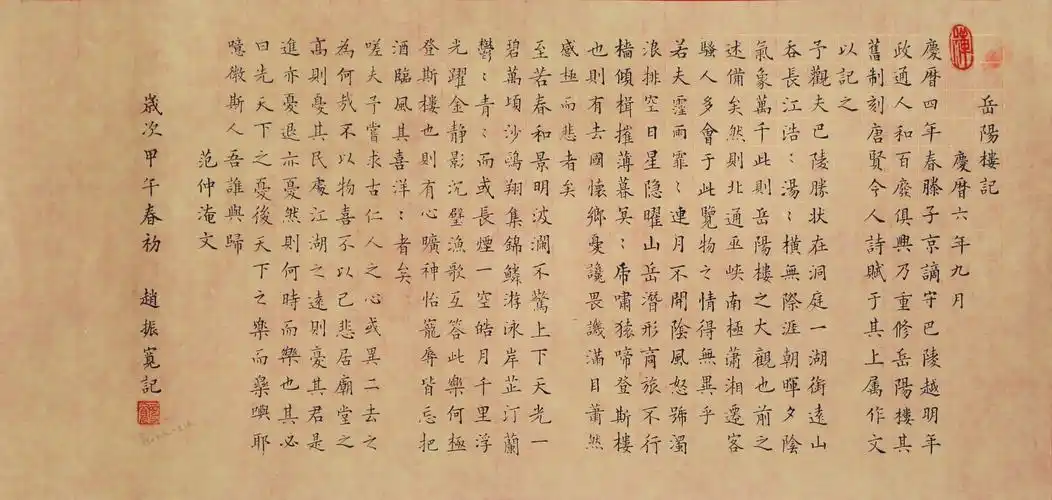 岳陽樓記
慶曆六年九月
慶曆四年春滕子京謫守巴陵越明年
政通人和百廢俱興乃重修岳陽樓其
舊制刻唐賢今人詩賦于其上属作文
以記之
子觀夫巴陵勝状在洞庭一湖銜遠山
吞長江浩〻湯〻橫無際涯朝暉夕陰
氣象萬千此則岳陽樓之大觀也前之
述備矣然則北通巫峽南極瀟湘遷客
騷人多會于此覽物之情得無異乎
若夫霪雨霏〻連月不開陰風怒號濁
浪排空日星隐曜山岳潛形商旅不行
檣傾楫摧薄暮冥〻虎嘯猿啼登斯樓
也則有去國懷鄉憂讒畏譏滿目蕭然
感極而悲者矣
至若春和景明波瀾不驚上下天光一
碧萬頃沙鷗翔集錦鱗游泳岸芷汀蘭
鬱〻青〻而或長煙一空皓月千里浮
光躍金静影沉璧漁歌互答此樂何極
登斯樓也則有心曠神怡寵辱皆忘把
酒臨風其喜洋〻者矣
嗟夫子嘗求古仁人之心或異二去之
為何哉不以物喜不以己悲居廟堂之
高則憂其民處江湖之遠則憂其君是
進亦憂退亦憂然則何時而樂也其必
曰先天下之憂後天下之樂而樂歟耶
噫微斯人吾誰與歸
范仲淹文
歲次甲午春初 趙振寬記